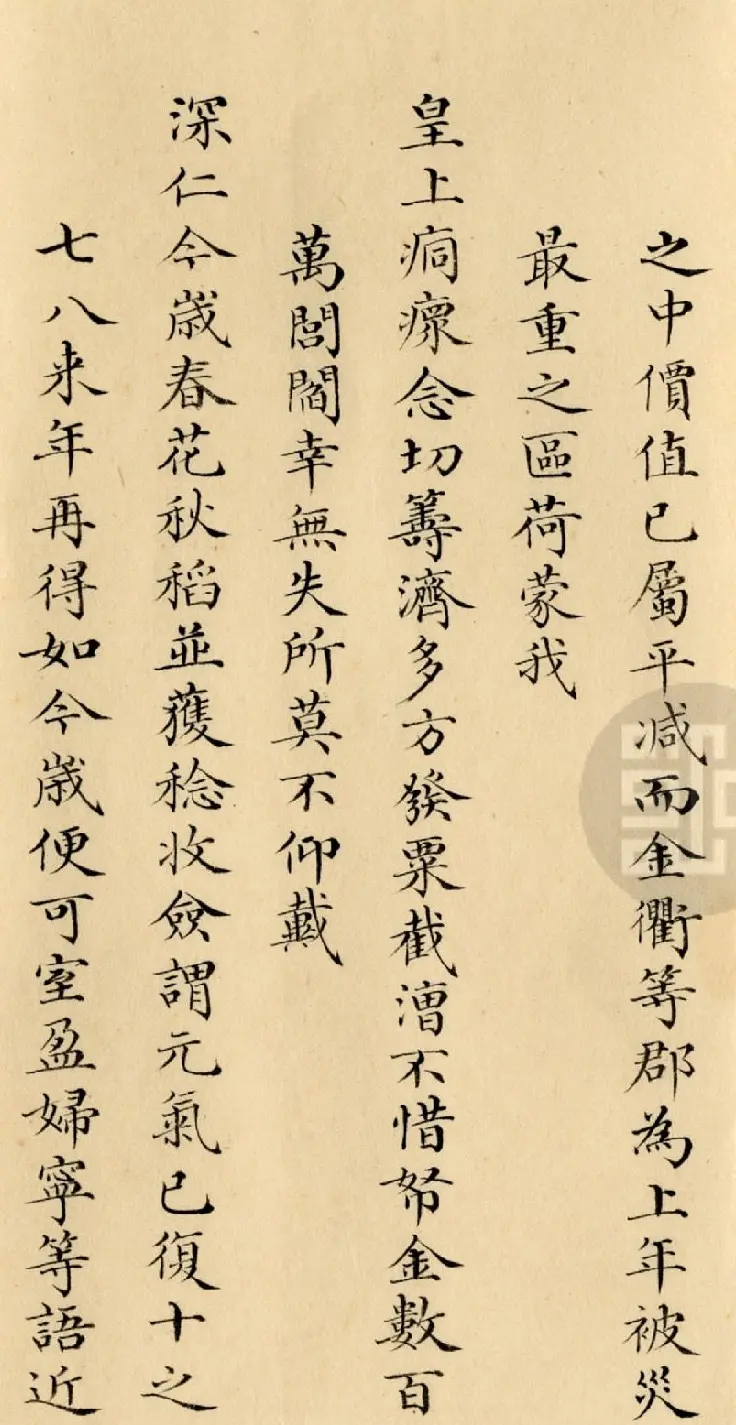 之中價值已屬平减而金衢等郡為上年被災
最重之區荷蒙我
皇上痌瘝念切籌濟多方發粟截漕不惜帑金數百
萬閭閻幸無失所莫不仰戴
深仁今歳春花秋稻並獲稔收僉謂元氣已復十之
七八来年再得如今歳便可室盈婦寧等語近